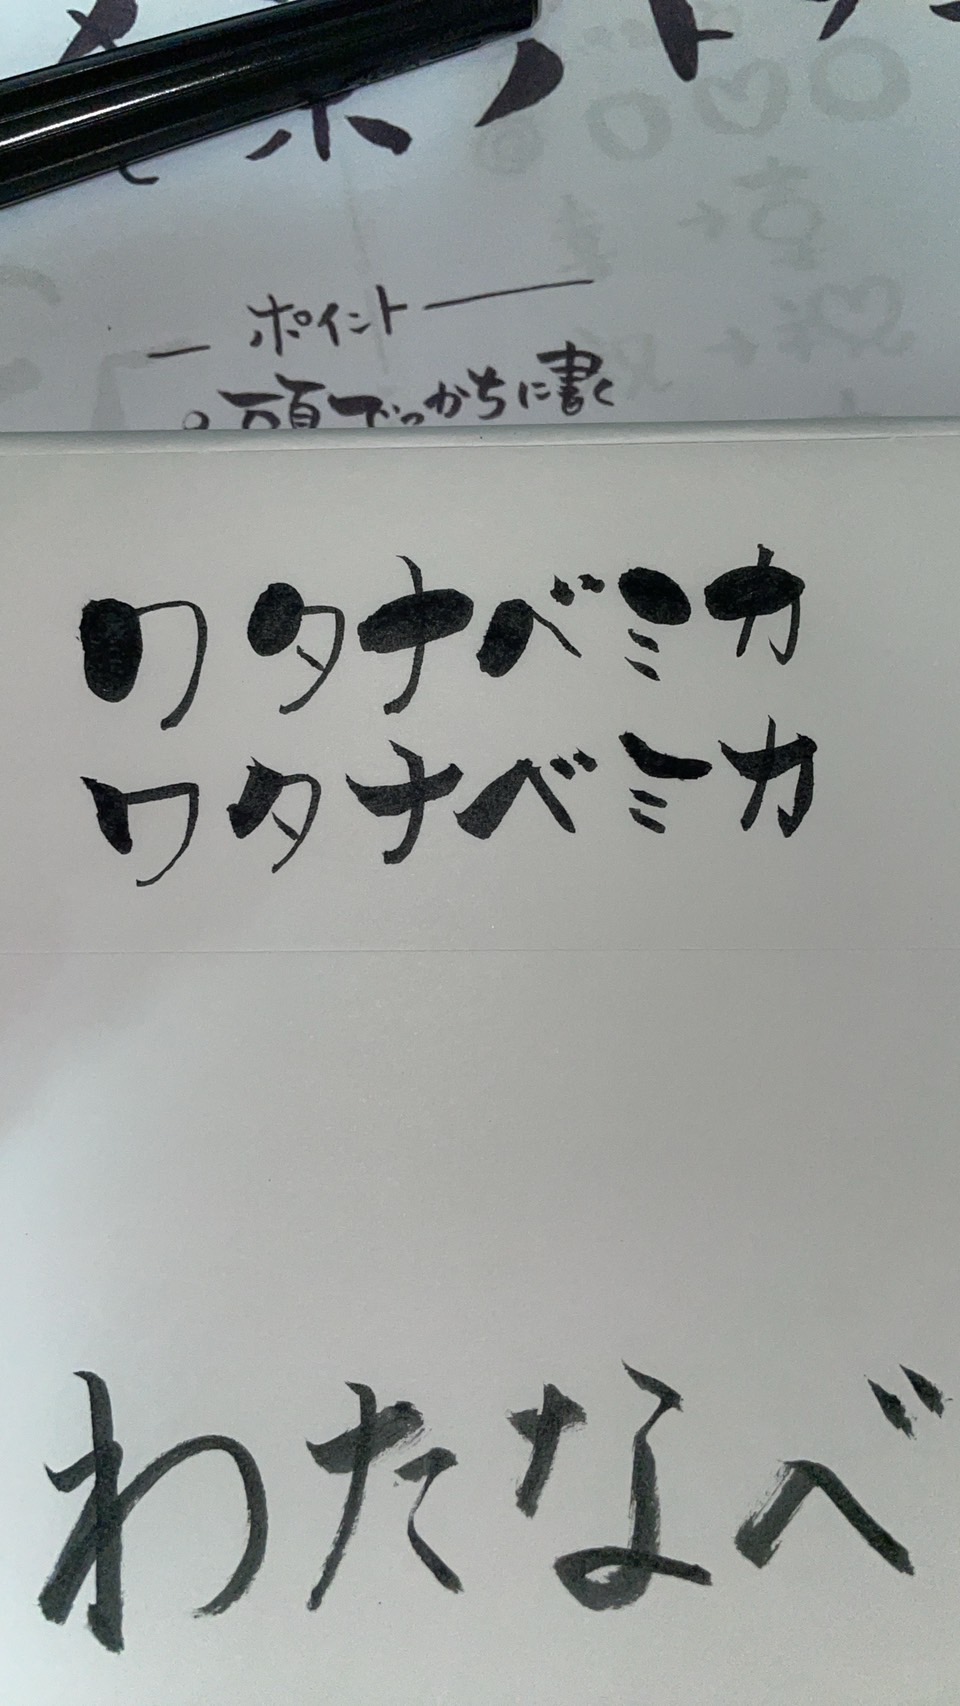 ポイント
。頭でっかちに書く
ワタナベミカ
ワタナベミカ
わたなべ